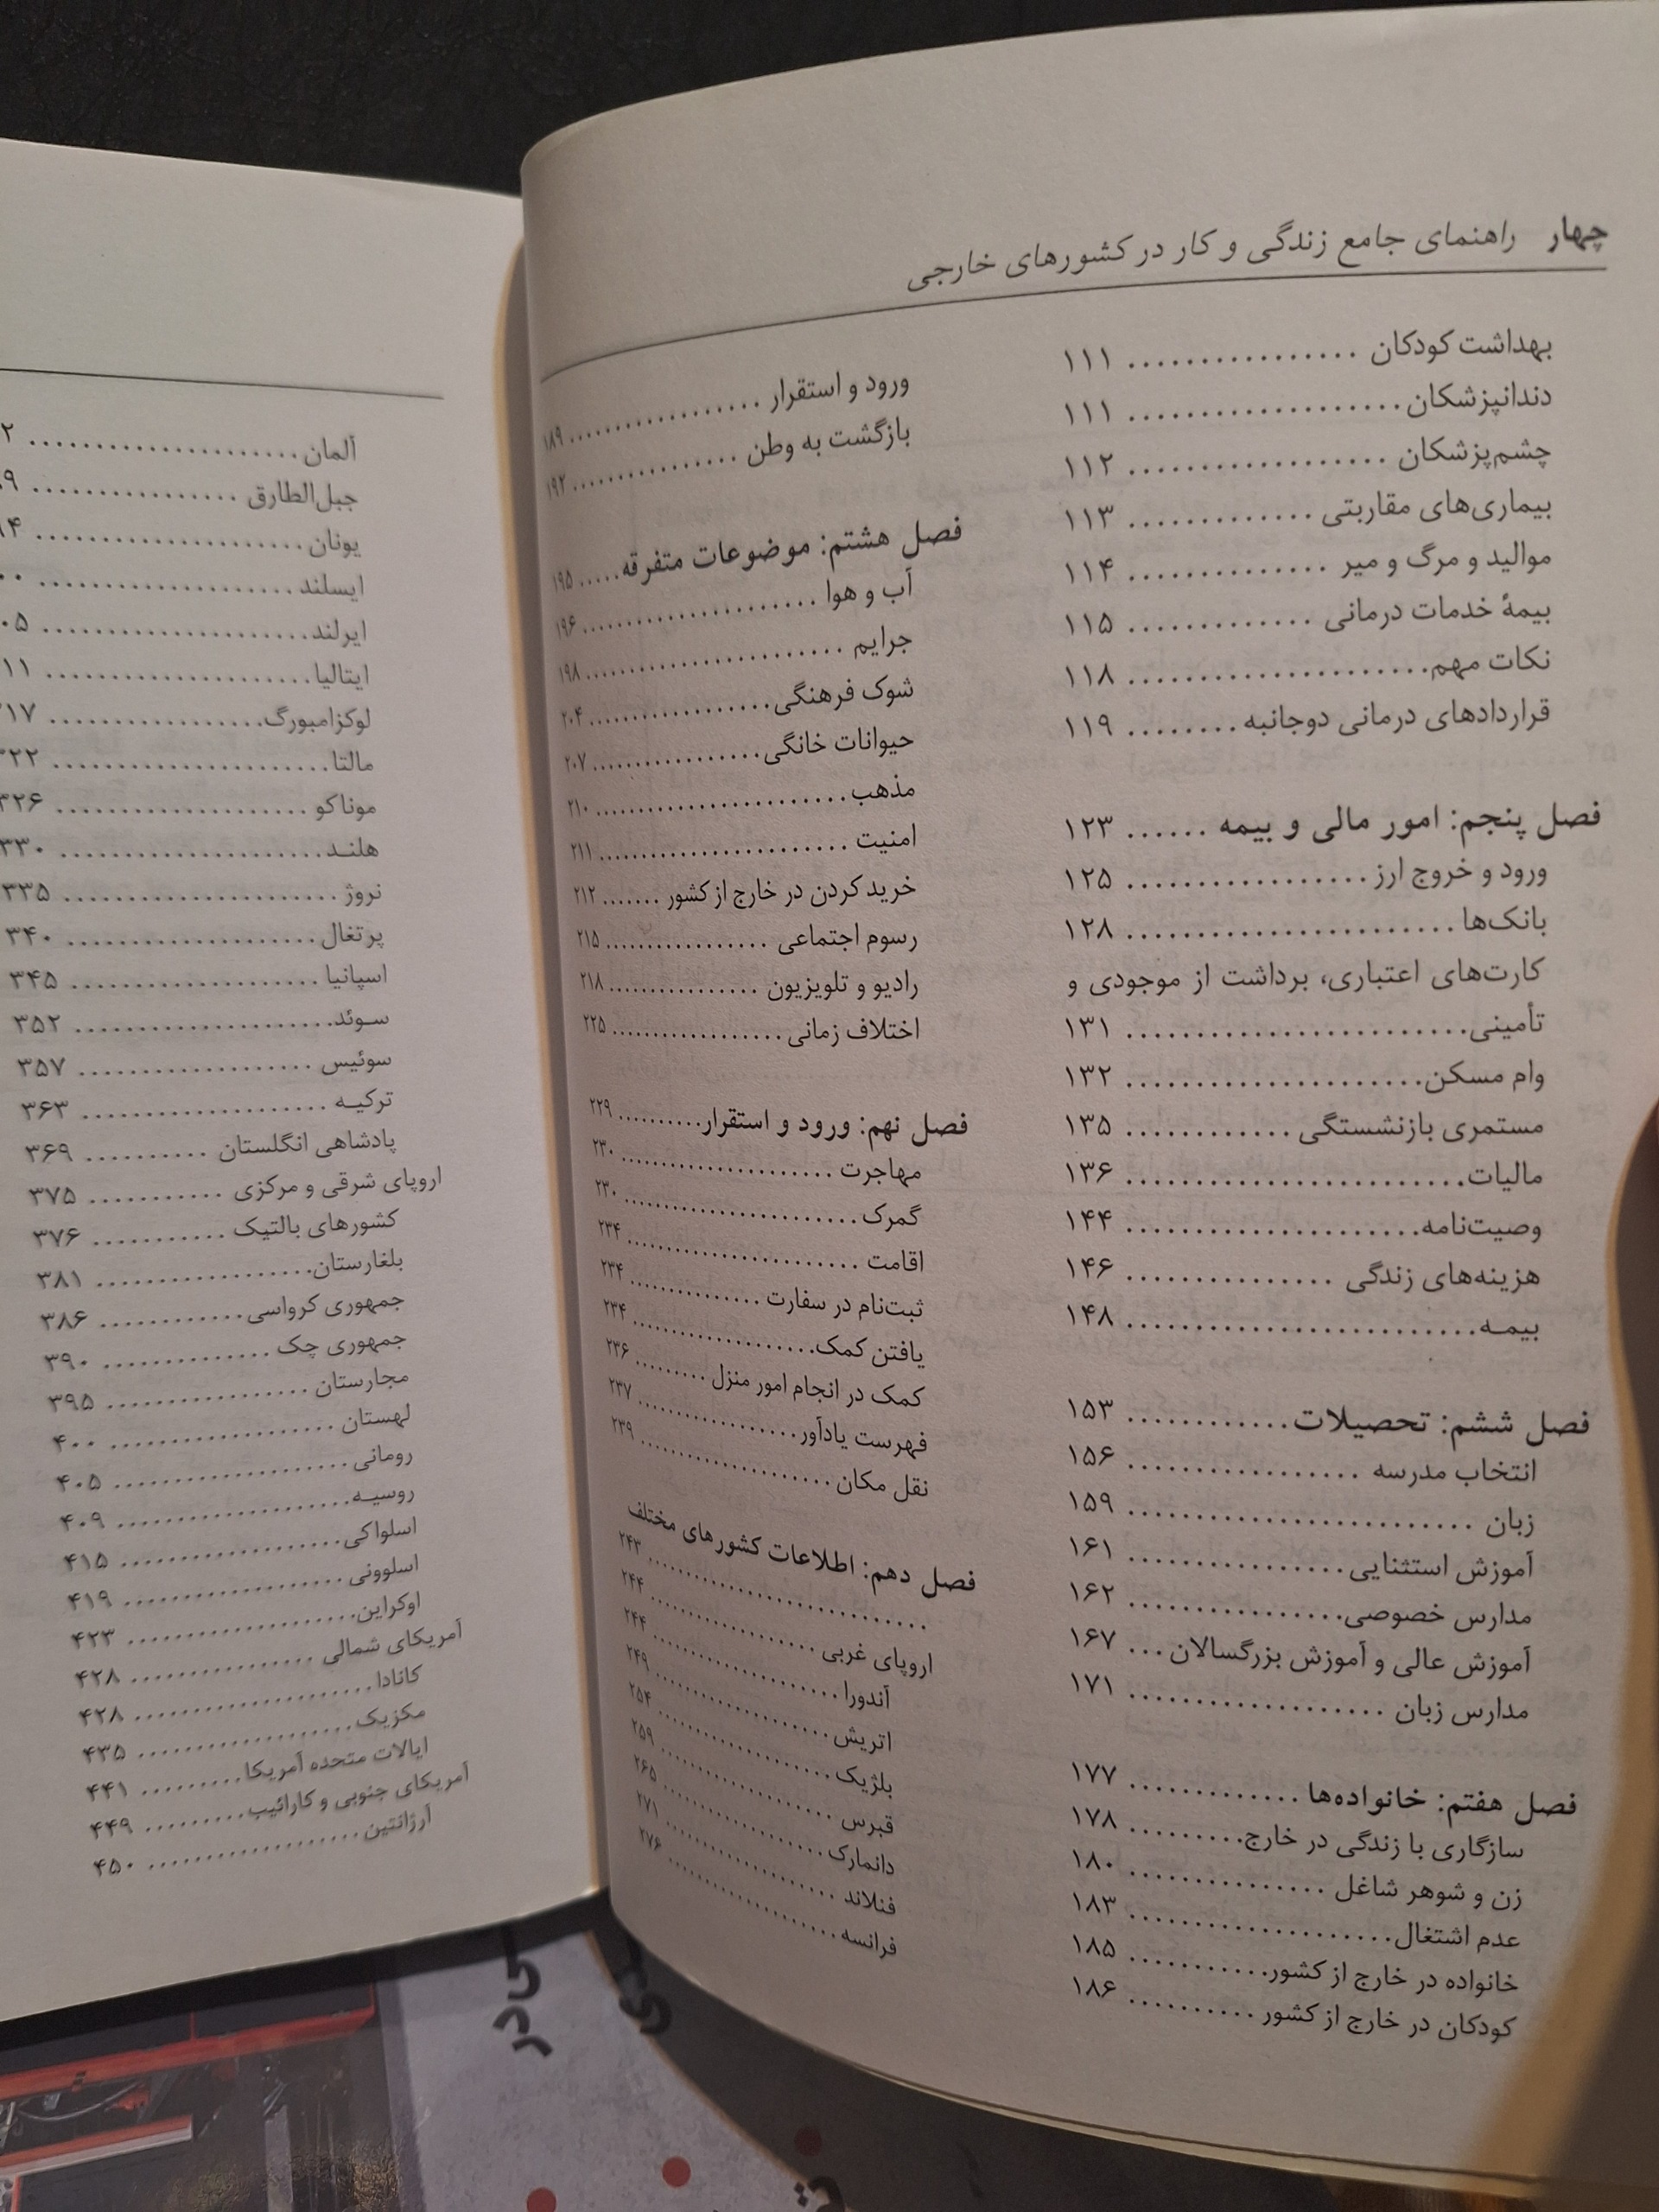 چهار راهنمای جامع زندگی و کار در کشورهای خارجی
بهداشت کودکان ................ ۱۱۱
دندانپزشکان ................... ۱۱۱
چشم‌پزشکان .................. ۱۱۲
بیماری‌های مقاربتی ............. ۱۱۳
موالید و مرگ و میر .............. ۱۱۴
بیمهٔ خدمات درمانی ............. ۱۱۵
نکات مهم ..................... ۱۱۸
قراردادهای درمانی دوجانبه ........ ۱۱۹
فصل پنجم: امور مالی و بیمه ...... ۱۲۳
ورود و خروج ارز ................. ۱۲۵
بانک‌ها ....................... ۱۲۸
کارت‌های اعتباری، برداشت از موجودی و
تأمینی ........................ ۱۳۱
وام مسکن ..................... ۱۳۲
مستمری بازنشستگی ............ ۱۳۵
مالیات ........................ ۱۳۶
وصیت‌نامه ..................... ۱۴۴
هزینه‌های زندگی ............... ۱۴۶
بیمـه ......................... ۱۴۸
فصل ششم: تحصیلات ............ ۱۵۳
انتخاب مدرسه ................. ۱۵۶
زبان ......................... ۱۵۹
آموزش استثنایی ................ ۱۶۱
مدارس خصوصی ................ ۱۶۲
آموزش عالی و آموزش بزرگسالان ... ۱۶۷
مدارس زبان ................... ۱۷۱
فصل هفتم: خانواده‌ها ............ ۱۷۷
سازگاری با زندگی در خارج ......... ۱۷۸
زن و شوهر شاغل ............... ۱۸۰
عدم اشتغال ................... ۱۸۳
خانواده در خارج از کشور ........... ۱۸۵
کودکان در خارج از کشور .......... ۱۸۶
ورود و استقرار .................. ۱۸۹
بازگشت به وطن ................ ۱۹۲
فصل هشتم: موضوعات متفرقه ..... ۱۹۵
آب و هوا ...................... ۱۹۶
جرایم ........................ ۱۹۸
شوک فرهنگی .................. ۲۰۴
حیوانات خانگی ................. ۲۰۷
مذهب ........................ ۲۱۰
امنیت ........................ ۲۱۱
خرید کردن در خارج از کشور ....... ۲۱۲
رسوم اجتماعی ................. ۲۱۵
رادیو و تلویزیون ................ ۲۱۸
اختلاف زمانی .................. ۲۲۵
فصل نهم: ورود و استقرار .......... ۲۲۹
مهاجرت ...................... ۲۳۰
گمرک ........................ ۲۳۰
اقامت ........................ ۲۳۴
ثبت‌نام در سفارت ............... ۲۳۴
یافتن کمک .................... ۲۳۴
کمک در انجام امور منزل ......... ۲۳۶
فهرست یادآور .................. ۲۳۷
نقل مکان ..................... ۲۳۹
فصل دهم: اطلاعات کشورهای مختلف
.............................. ۲۴۳
اروپای غربی ................... ۲۴۴
آندورا ........................ ۲۴۴
اتریش ....................... ۲۴۹
بلژیک ........................ ۲۵۴
قبرس ........................ ۲۵۹
دانمارک ...................... ۲۶۵
فنلاند ........................ ۲۷۱
فرانسه ....................... ۲۷۶
آلمان ......................
جبل‌الطارق .................
یونان ......................
ایسلند .....................
ایرلند ......................
ایتالیا ......................
لوکزامبورگ ..................
مالتا .....................
موناکو ................... ۳۲۶
هلنـد .................... ۳۳۰
نروژ ..................... ۳۳۵
پرتغال ................... ۳۴۰
اسپانیا ................... ۳۴۵
سـوئد .................... ۳۵۲
سوئیس ................... ۳۵۷
ترکیـه ................... ۳۶۳
پادشاهی انگلستان .......... ۳۶۹
اروپای شرقی و مرکزی ........... ۳۷۵
کشورهای بالتیک ........... ۳۷۶
بلغارستان ................. ۳۸۱
جمهوری کرواسی ............ ۳۸۶
جمهوری چک .............. ۳۹۰
مجارستان ................. ۳۹۵
لهستان ................... ۴۰۰
رومانی .................... ۴۰۵
روسیـه ................... ۴۰۹
اسلواکی .................. ۴۱۵
اسلوونی ................... ۴۱۹
اوکراین ................... ۴۲۳
آمریکای شمالی ................ ۴۲۸
کانادا .................... ۴۲۸
مکزیک ................... ۴۳۵
ایالات متحده آمریکا ......... ۴۴۱
آمریکای جنوبی و کارائیب ......... ۴۴۹
آرژانتین .................. ۴۵۰